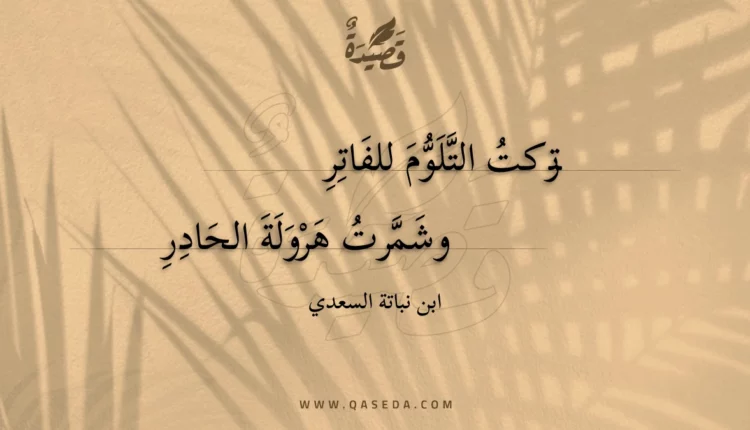 قَصِيْدَةٌ
تركتُ التَّلَوُّمَ للفَاتِرِ
وشَمَّرتُ هَرْوَلَةَ الحَادِرِ
ابن نباتة السعدي
WWW.QASEDA.COM